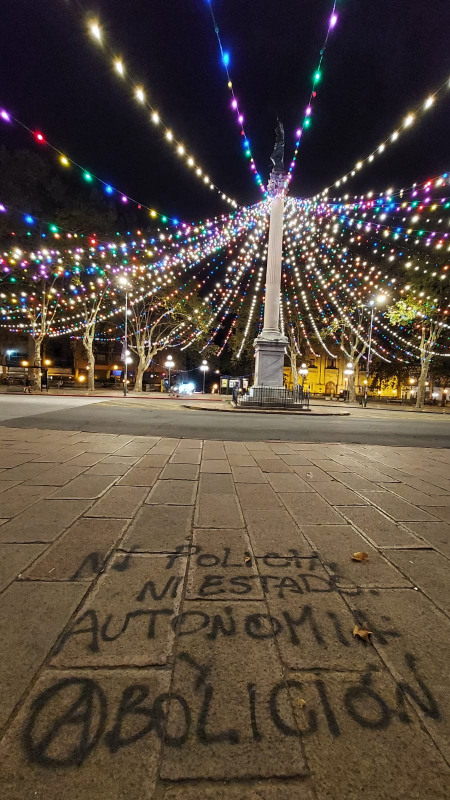 NI POLICIA
NI ESTADO.
AUTONOMIA
Y
ABOLICIÓN